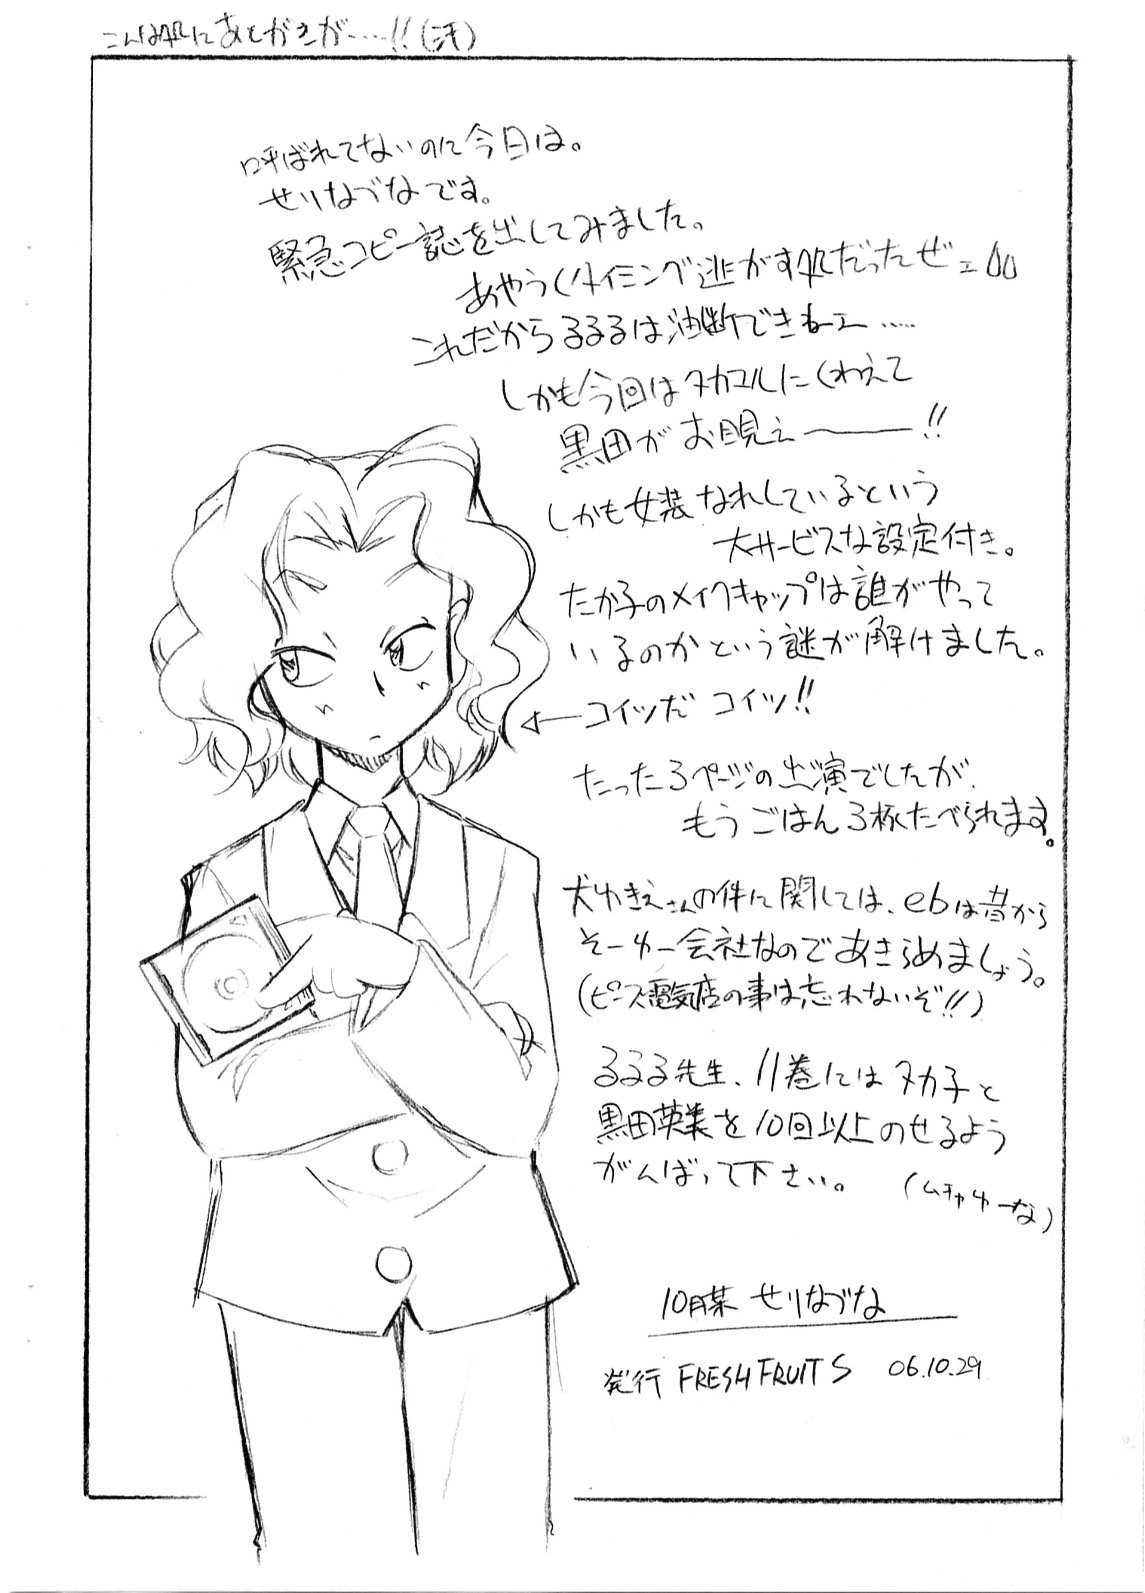 こんな処にあとがきが……!!(汗)
呼ばれてないのに今日は。
せりなづなです。
緊急コピー誌を出してみました。
あやうくタイミング逃がす処だったぜ
これだからるるるは油断できねー……
しかも今回はタカコルにくわえて
黒田がお目見え―――!!
しかも女装なれしているという
大サービスな設定付き。
たか子のメイクキャップは誰がやって
いるのかという謎が解けました。
←コイツだ コイツ!!
たった3ページの出演でしたが、
もうごはん3杯たべられます。
犬ゆきえさんの件に関しては、ebは昔から
そーゆー会社なのであきらめましょう。
(ピース電気店の事は忘れないぞ!!)
るるる先生、11巻にはタカ子と
黒田英美を10回以上のせるよう
がんばって下さい。
(ムチャゆーな)
10月某 せりなづな
発行 FRESH FRUITS 06.10.29